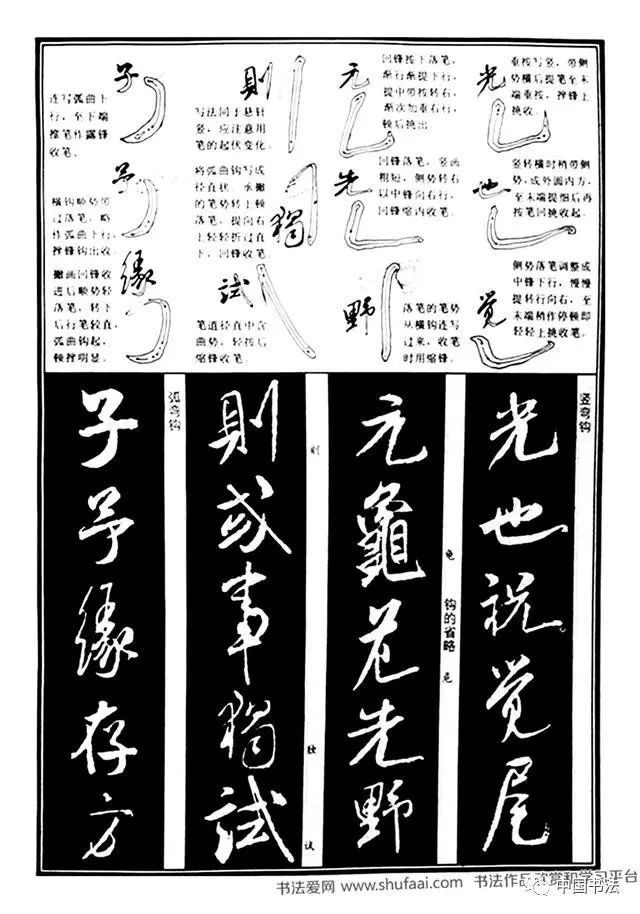 光
垂按写竖，带侧
势横后提笔至末
端垂按，挫锋上
挑收。
也
竖转横时稍带侧
势，或外圆内方，
至末端提细后再
按笔回挑收起。
觉
侧势落笔调整成
中锋下行，慢慢
提转行向右，至
末端稍作停顿即
轻轻上挑收笔。
元
回锋按下落笔，
渐行渐提下行，
提中带按转右，
渐次加重右行，
顿后挑出
先
回锋落笔，竖画
粗短，侧势转右
以中锋向右行，
回锋缩内收笔。
野
落笔的笔势
从横钩连写
过来，收笔
时用缩锋。
則
写法同于悬针
竖，应注意用
笔的起伏变化。
獨
将弧曲钩写成
径直状。承撇
的笔势转上顿
落笔，提向右
上轻轻折过直
下，回锋收笔。
試
笔道径直中含
曲势，轻按后
缩锋收笔。
子
连写弧曲下
行，至下端
推笔作露锋
收笔。
予
横钩顺势带
过落笔，略
作弧曲下行，
挫锋钩出收。
缘
撇画回锋收
进后顺势轻
落笔，转下
后行笔较直，
弧曲钩起，
顿挫明显。
竖弯钩
光也祝觉尾
钩的省略
元龜先野
則或事獨試
则
独
试
弧弯钩
子予缘存方
书法爱网 www.shufaai.com 书法作品欣赏和学习平台
中国书法